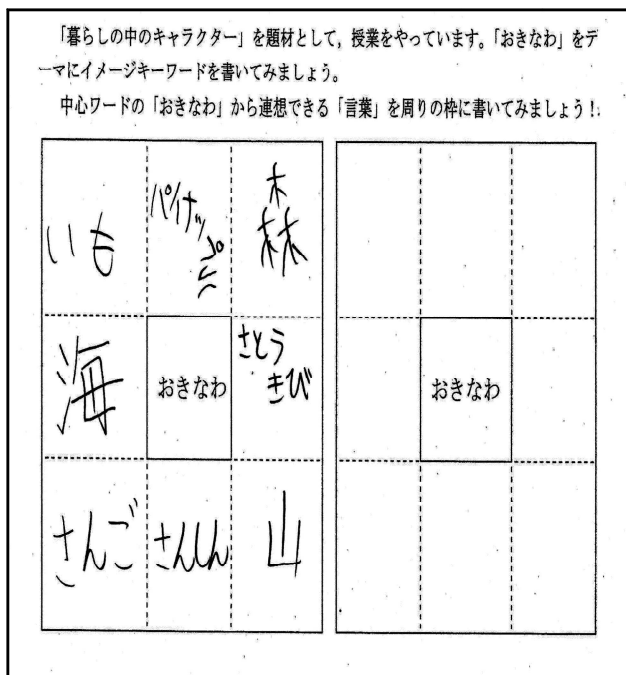 「暮らしの中のキャラクター」を題材として，授業をやっています。「おきなわ」をデ
ーマにイメージキーワードを書いてみましょう。
中心ワードの「おきなわ」から連想できる「言葉」を周りの枠に書いてみましょう！
いも
パイナップル
森
海
おきなわ
さとう
きび
おきなわ
さんご
さんしん
山